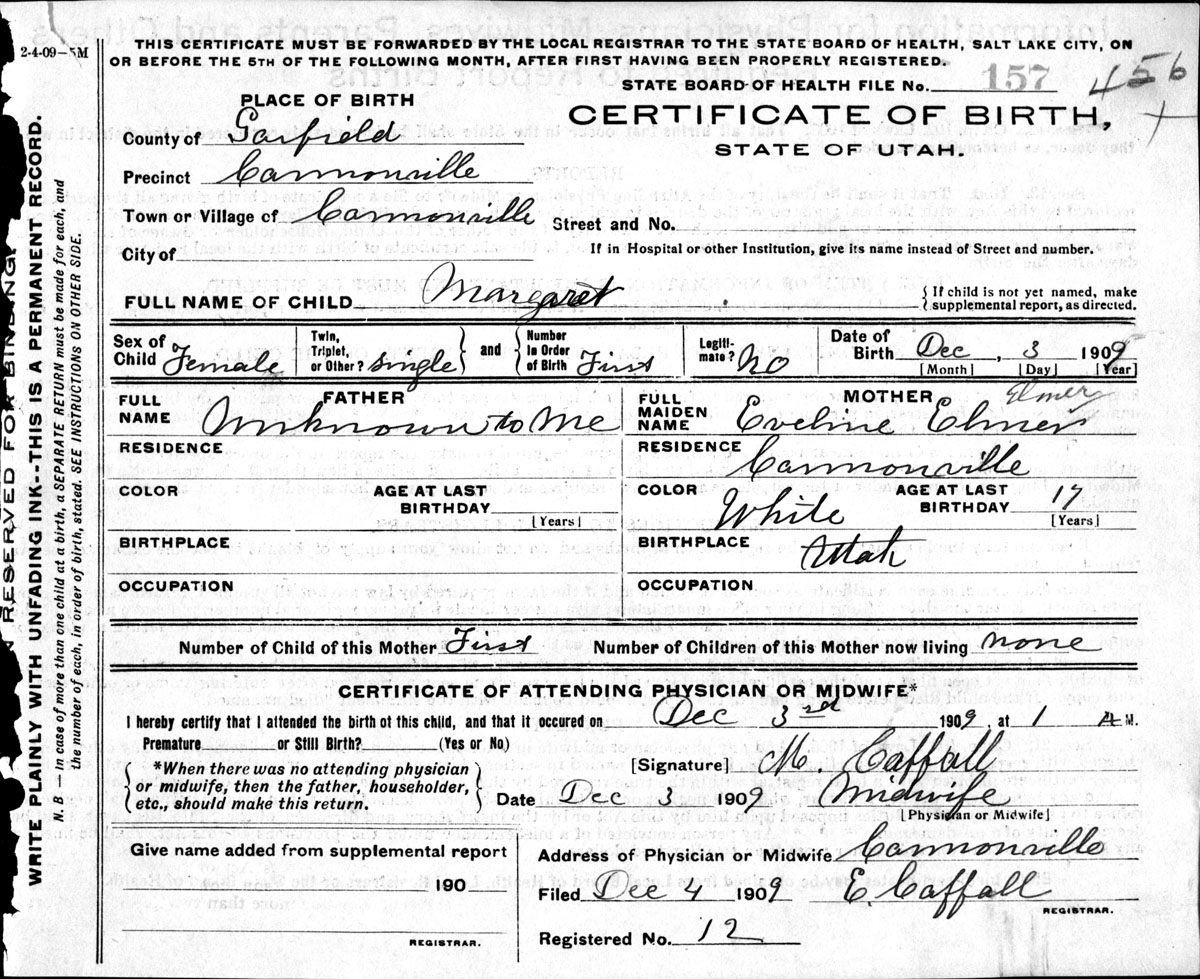 2-4-09-5M
THIS CERTIFICATE MUST BE FORWARDED BY THE LOCAL REGISTRAR TO THE STATE BOARD OF HEALTH, SALT LAKE CITY, ON
OR BEFORE THE 5TH OF THE FOLLOWING MONTH, AFTER FIRST HAVING BEEN PROPERLY REGISTERED.
STATE BOARD OF HEALTH FILE No. 157 456
PLACE OF BIRTH
CERTIFICATE OF BIRTH,
STATE OF UTAH.
County of Garfield
Precinct Cannonville
Town or Village of Cannonville Street and No.
City of If in Hospital or other Institution, give its name instead of Street and number.
FULL NAME OF CHILD Margaret { If child is not yet named, make supplemental report, as directed.
Sex of Child Female Twin, Triplet, or Other? single and Number in Order of Birth First Legitimate? No Date of Birth Dec, 3 1909
[Month] [Day] [Year]
FATHER
FULL NAME Unknown to Me
RESIDENCE
COLOR AGE AT LAST BIRTHDAY
[Years]
BIRTHPLACE
OCCUPATION
MOTHER Elmer
FULL MAIDEN NAME Eveline Elmer
RESIDENCE Cannonville
COLOR White AGE AT LAST BIRTHDAY 17
[Years]
BIRTHPLACE Utah
OCCUPATION
Number of Child of this Mother First Number of Children of this Mother now living none
CERTIFICATE OF ATTENDING PHYSICIAN OR MIDWIFE*
I hereby certify that I attended the birth of this child, and that it occured on Dec 3rd 1909, at 1 A M.
Premature or Still Birth? (Yes or No)
*When there was no attending physician
or midwife, then the father, householder,
etc., should make this return.
[Signature] M. Caffall
Date Dec 3 1909 Midwife
[Physician or Midwife]
Give name added from supplemental report
190
REGISTRAR.
Address of Physician or Midwife Cannonville
Filed Dec 4 1909 E. Caffall
REGISTRAR.
Registered No. 12
RESERVED FOR BINDING.
WRITE PLAINLY WITH UNFADING INK--THIS IS A PERMANENT RECORD.
N. B.—In case of more than one child at a birth, a SEPARATE RETURN must be made for each, and
the number of each, in order of birth, stated. SEE INSTRUCTIONS ON OTHER SIDE.